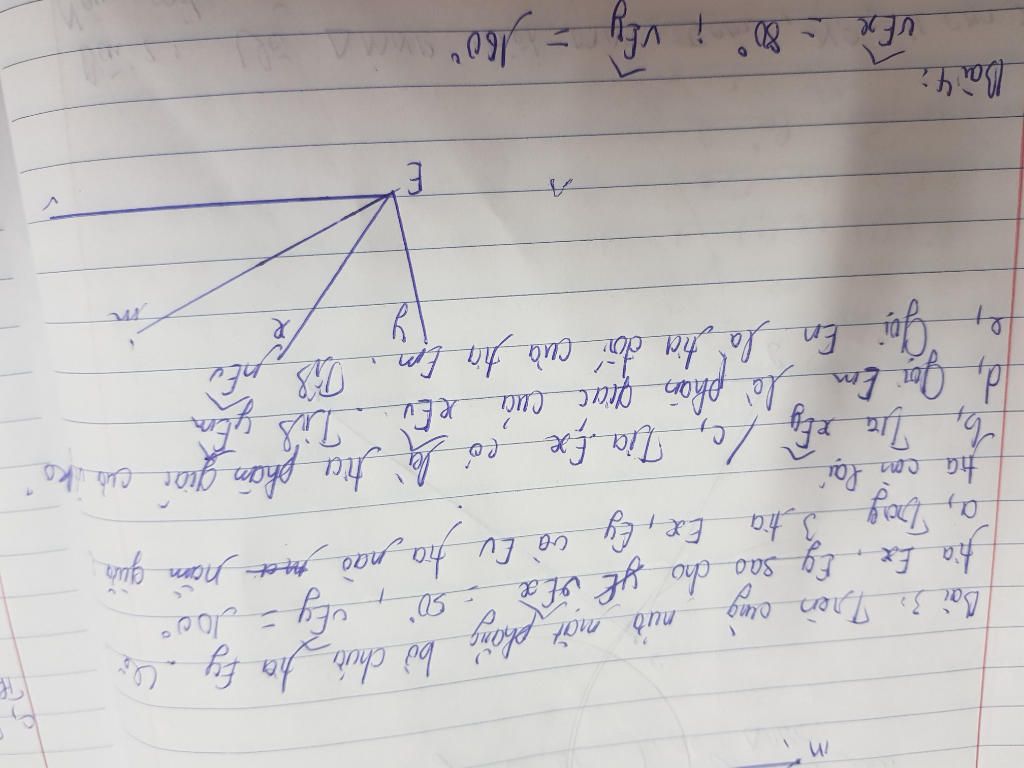 m
Bài 3: Trên cùng nửa mặt phẳng bờ chứa tia Ey. Vẽ
tia Ex, Ey sao cho vEx = 50°, vEy = 100°
a, Trong 3 tia Ex, Ey và Ev tia nào nằm giữa
tia còn lại
b, Tia xEy / c, Tia Ex có là tia phân giác của
d, Gọi Em là phân giác của xEv. Tính yEm
e, Gọi En là tia đối của tia Em. Tính nEv
y
x
m
E
v
Bài 4:
vEx = 80° ; vEy = 160°